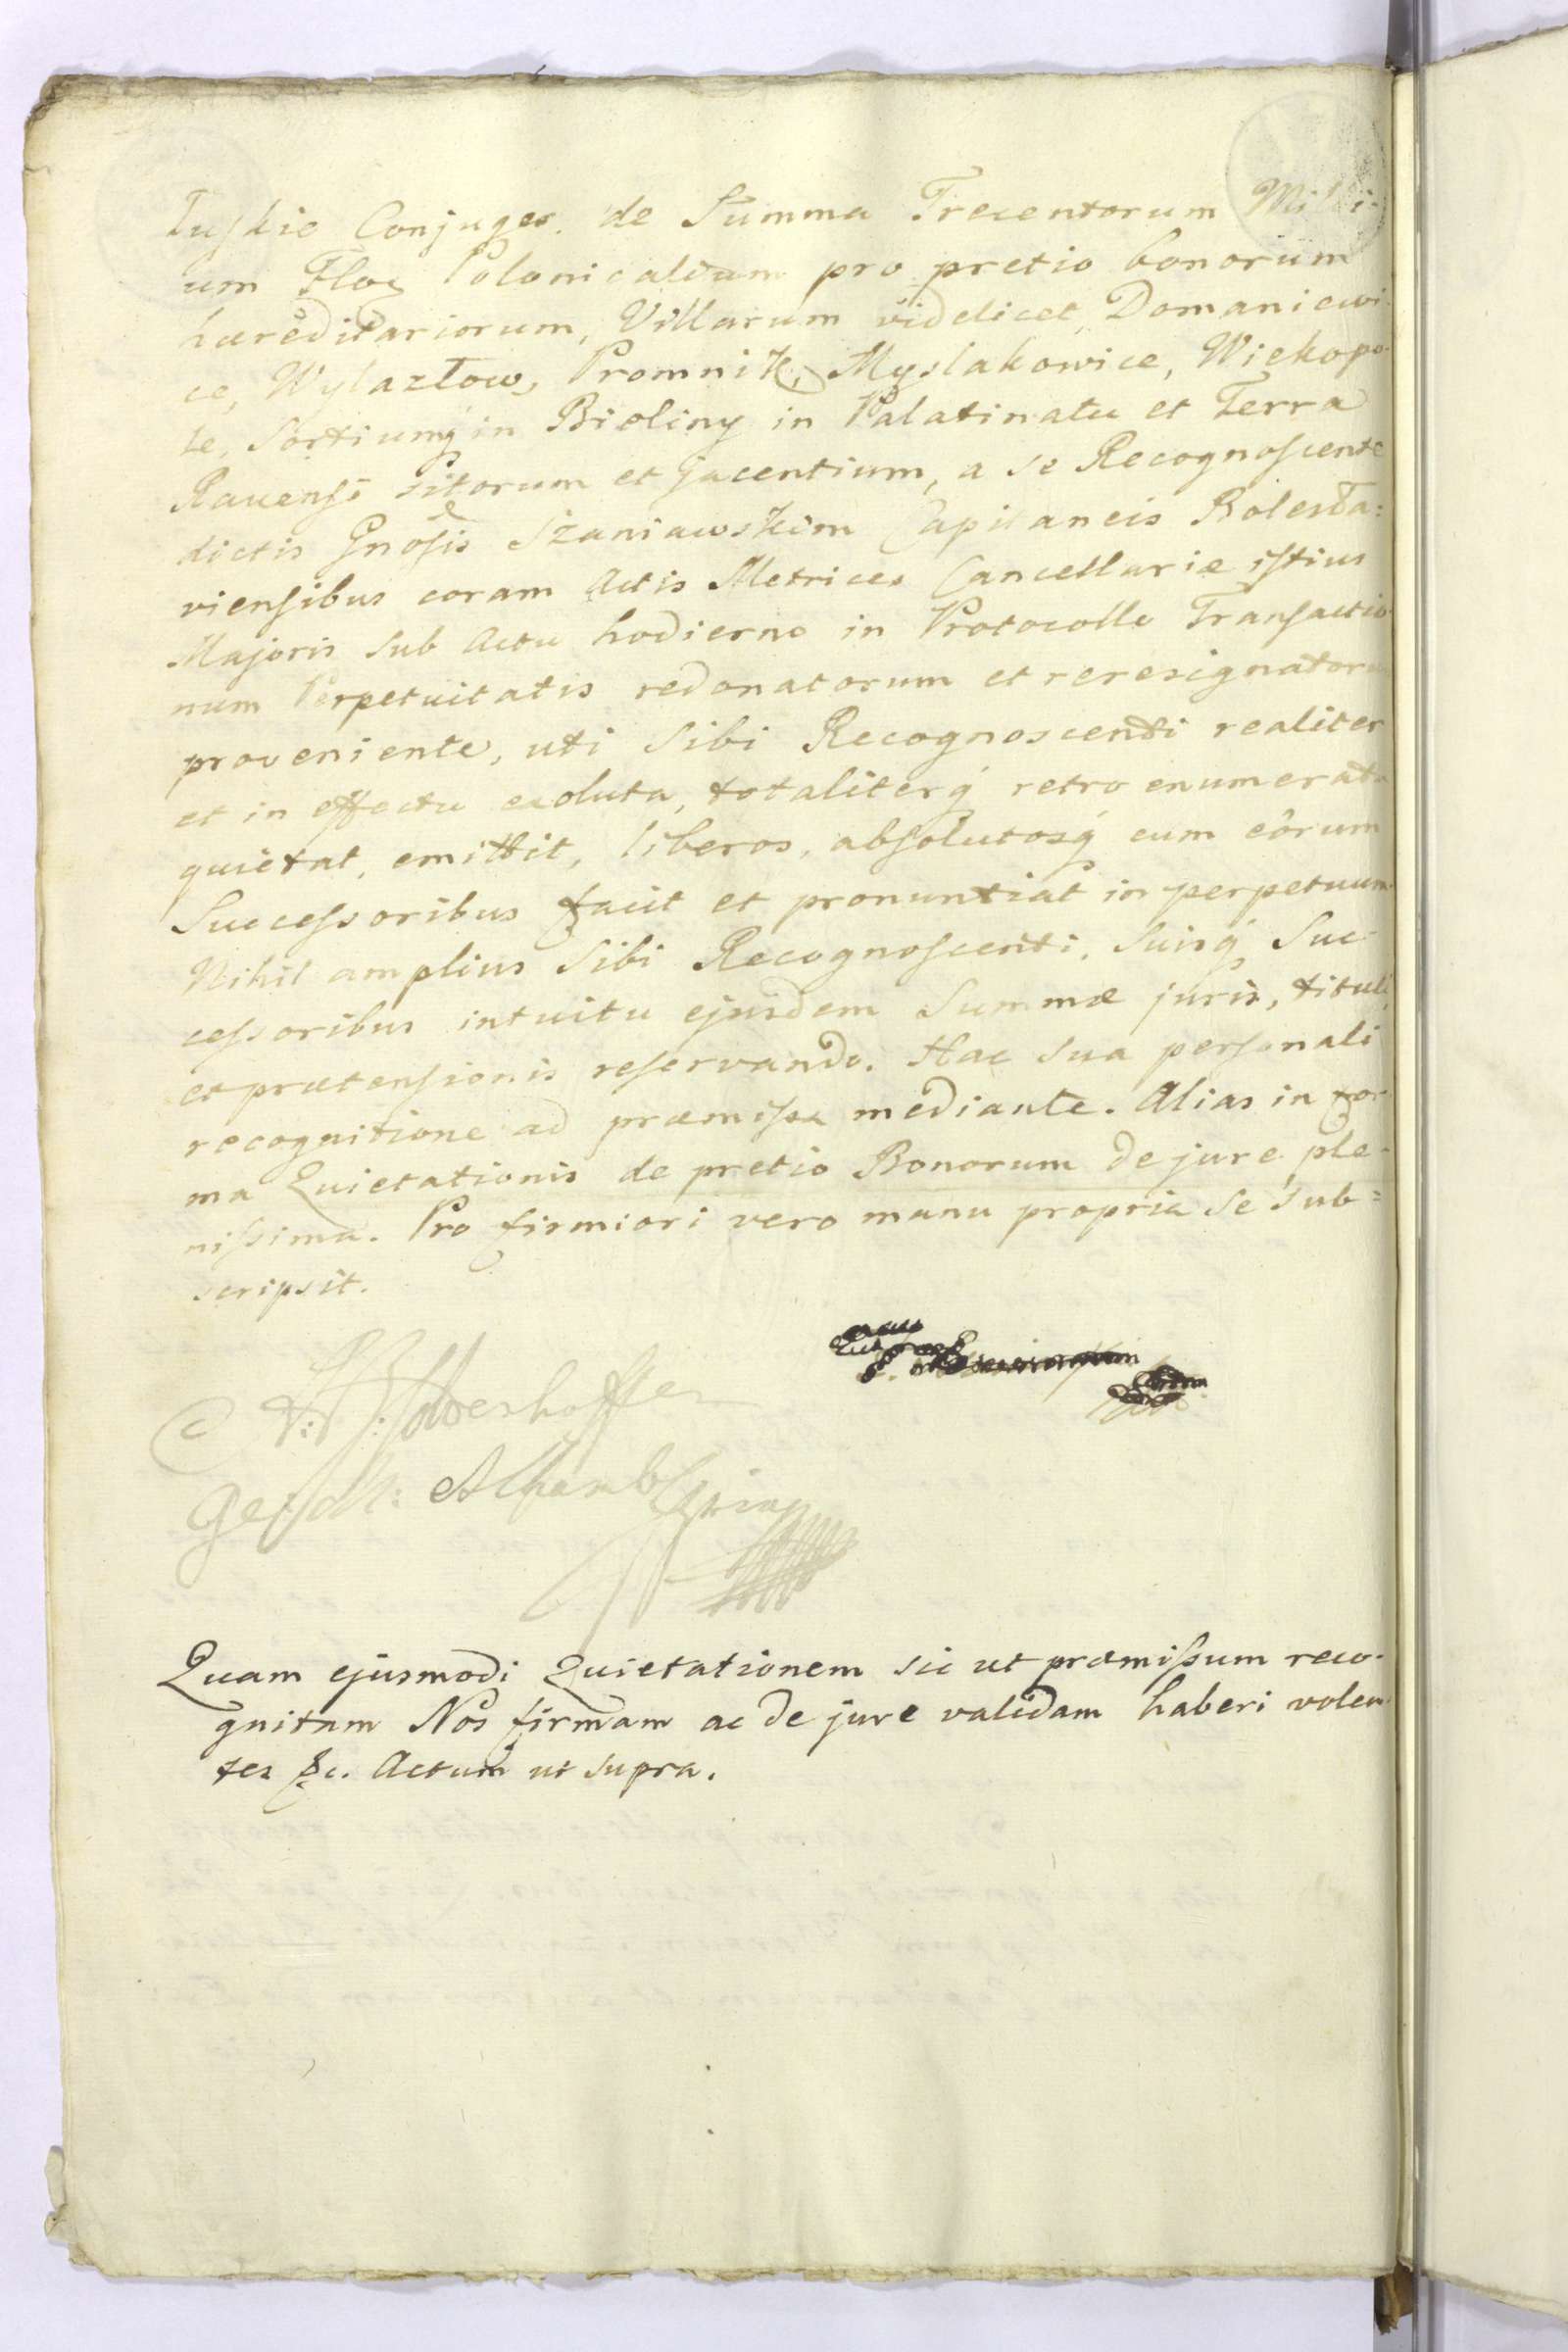 tuskie Conjuges. de Summa Trecentorum Milli-
um Flor Polonicalium pro pretio bonorum
hæreditariorum, Villarum videlicet Domaniewi-
ce, Wylazłow, Promnik, Myslakowice, Wiekopo-
le, Sortiumq́ in Bieliny in Palatinatu et Terra
Ravensi sitorum et jacentium, a se Recognoscente
dictis Gnosis Szaniawskim Capitaneis Bolesta:
viensibus coram Actis Metrices Cancellariæ istius
Majoris sub Actu hodierno in Protocollo Transactio-
num Perpetuitatis redonatorum et reresignatoru
proveniente, uti Sibi Recognoscenti realiter
et in effectu exoluta, totaliterq́ retro enumerata
quietat, emittit, liberos, absolutosq́ cum eorum
Successoribus facit et pronuntiat in perpetuum
Nihil amplius Sibi Recognoscenti, Suisq́ Suc-
cessoribus intuitu ejusdem Summæ juris, tituli,
et prætensionis reservando. Hac sua personali
recognitione ad præmissa mediante. Alias in for-
ma Quietationis de pretio Bonorum de jure ple-
nissima. Pro firmiori vero manu propria se sub=
scripsit.
Quam ejusmodi Quietationem sic ut præmissum reco-
gnitam Nos firmam ac de jure validam haberi volen-
tes &c. Actum ut supra.